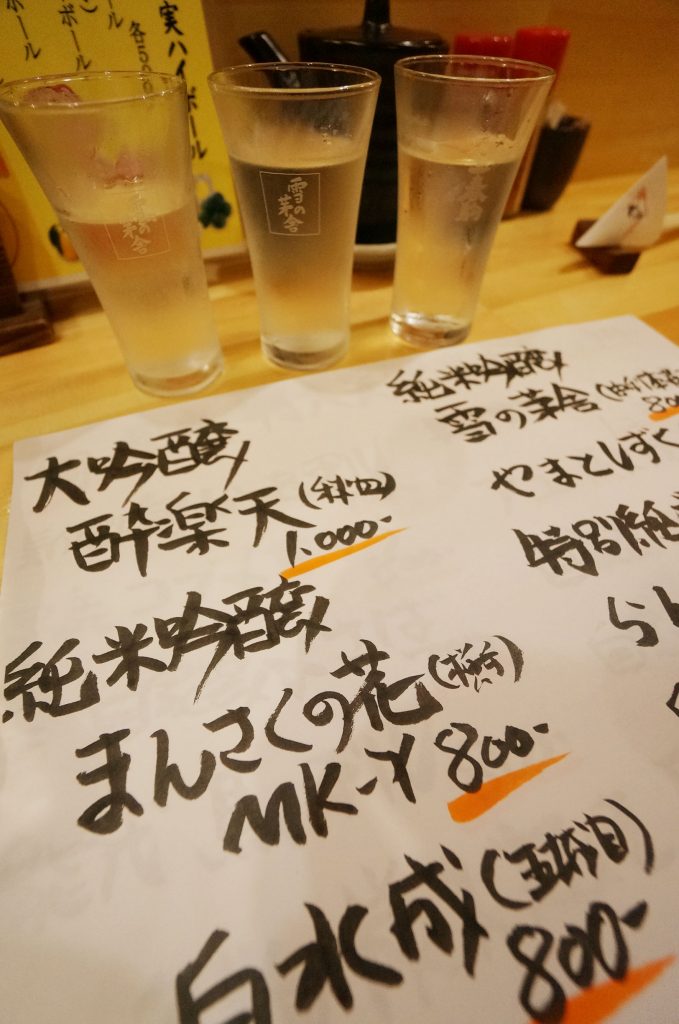 実ハイボール
各500
ボール
ール
雪の茅舎
雪の茅舎
大吟醸
酔楽天(秋田)
1,000-
純米吟醸
まんさくの花
MK-Y 800-
白水成
800-
純米吟醸
雪の茅舎
やまとしずく
特別純